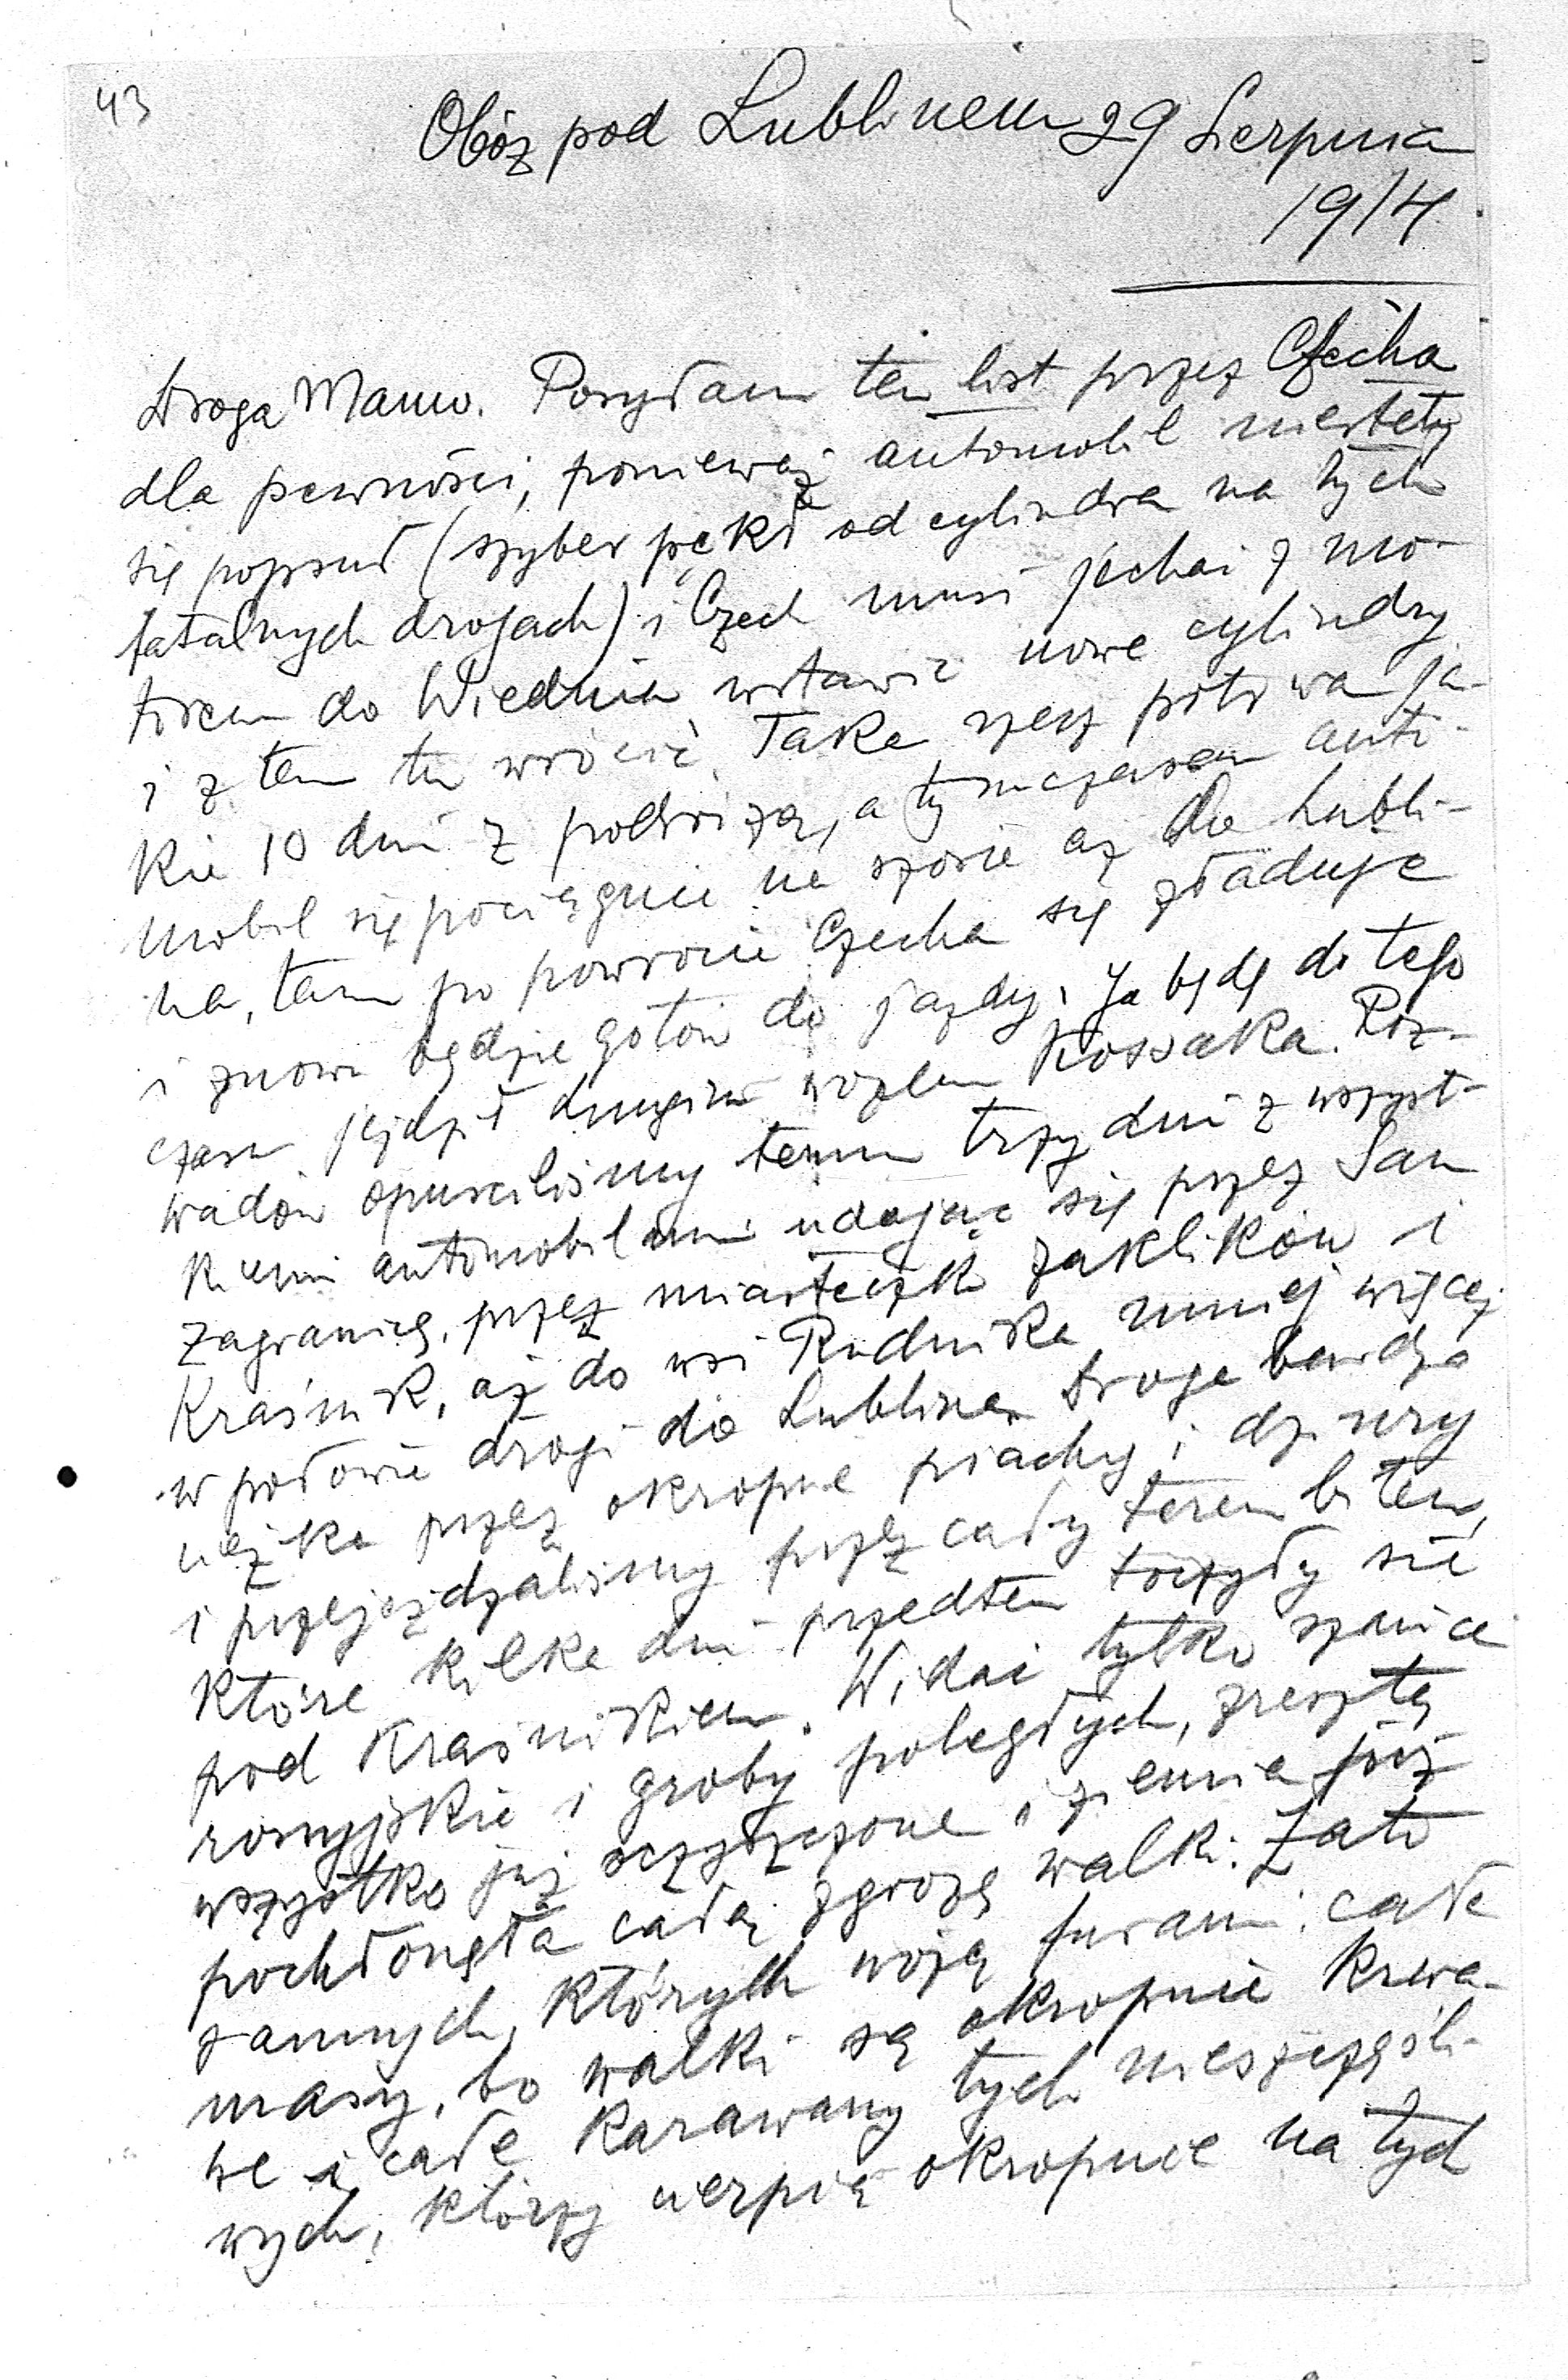 43
Obóz pod Lublinem 29 Sierpnia
1914
Droga Mamo. Posyłam ten list przez Czecha
dla pewności, ponieważ automobil niestety
się popsuł (szyber pękł od cylindra na tych
fatalnych drogach) i Czech musi jechać z mo-
torem do Wiednia wstawić nowe cylindry
i z tem tu wrócić. Taka rzecz potrwa ja-
kie 10 dni z podróżą, a tymczasem auto-
mobil się pociągnie na szosie aż do Lubli-
na, tam po powrocie Czecha się zładuje
i znowu będzie gotów do jazdy. Ja będę do tego
czasu jeździł drugim wozem Kossaka. Roz-
wadów opuściliśmy temu trzy dni z wszyst-
kiemi automobilami udając się przez San
zagranicę, przez miasteczko Zaklików i
Kraśnik, aż do wsi Rudnika mniej więcej
w połowie drogi do Lublina. Droga bardzo
ciężka przez okropne piachy i dziury
i przejeżdzaliśmy przez cały teren bitew,
które kilka dni przedtem toczyły się
pod Kraśnikiem. Widać tylko szańce
rosyjskie i groby poległych, zresztą
wszystko już oczyszczone i ziemia już
pochłonęła całą zgrozę walki. Zato
rannych, których wożą furami, całe
masy, bo walki są okropnie krwa-
we i całe karawany tych nieszczęśli-
wych, którzy cierpią okropnie na tych